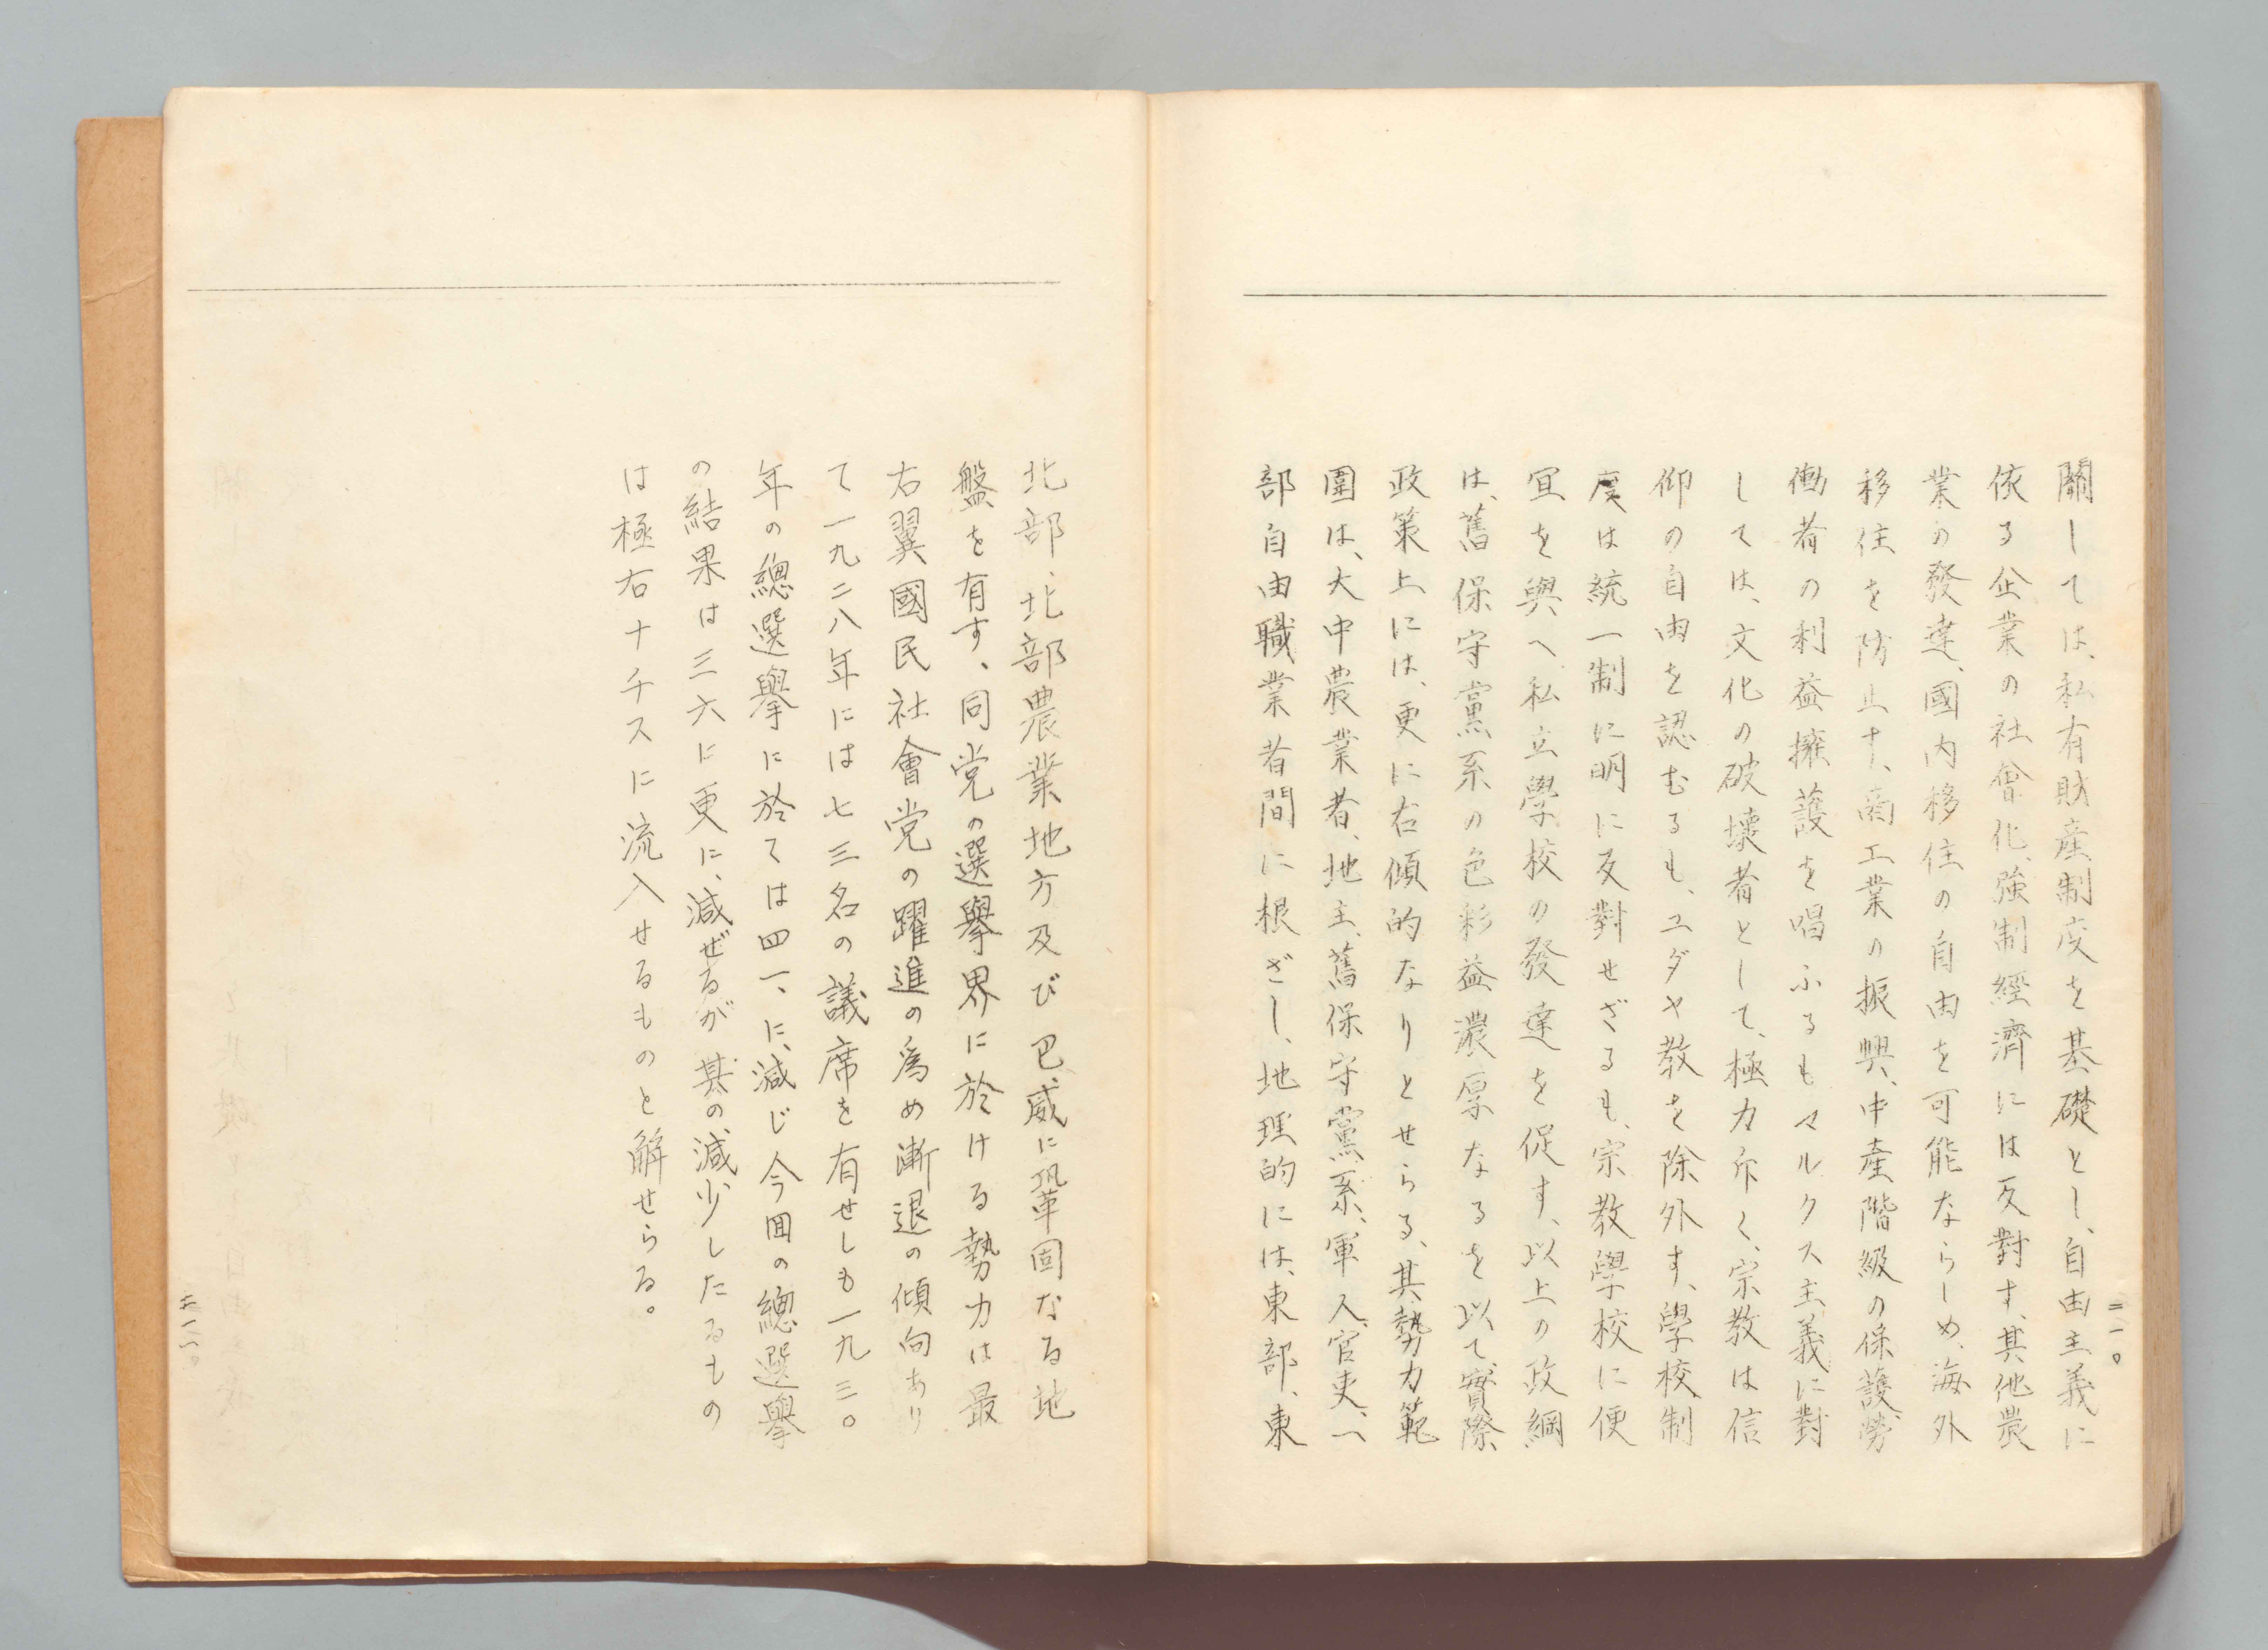 二一〇
關しては、私有財産制度を基礎とし、自由主義に
依る企業の社會化、強制經濟には反對す、其他農
業の發達、國内移住の自由を可能ならしめ、海外
移住を防止す、商工業の振興、中産階級の保護、勞
働者の利益擁護を唱ふるもマルクス主義に對
しては、文化の破壊者として、極力斥く、宗教は信
仰の自由を認むるも、ユダヤ教を除外す、學校制
度は統一制に明に反對せざるも、宗教學校に便
宜を與へ私立學校の發達を促す、以上の政綱
は、舊保守黨系の色彩益濃厚なるを以て、實際
政策上には、更に右傾的なりとせらる、其勢力範
圍は、大中農業者、地主、舊保守黨系、軍人、官吏、一
部自由職業者間に根ざし、地理的には、東部、東
北部、北部農業地方及び巴威に鞏固なる地
盤を有す、同党の選擧界に於ける勢力は最
右翼國民社會党の躍進の爲め漸退の傾向あり
て一九二八年には七三名の議席を有せしも一九三〇
年の總選擧に於ては四一、に、減じ今囬の總選擧
の結果は三六に更に、減ぜるが其の、減少したるもの
は極右ナチスに流入せるものと解せらる。